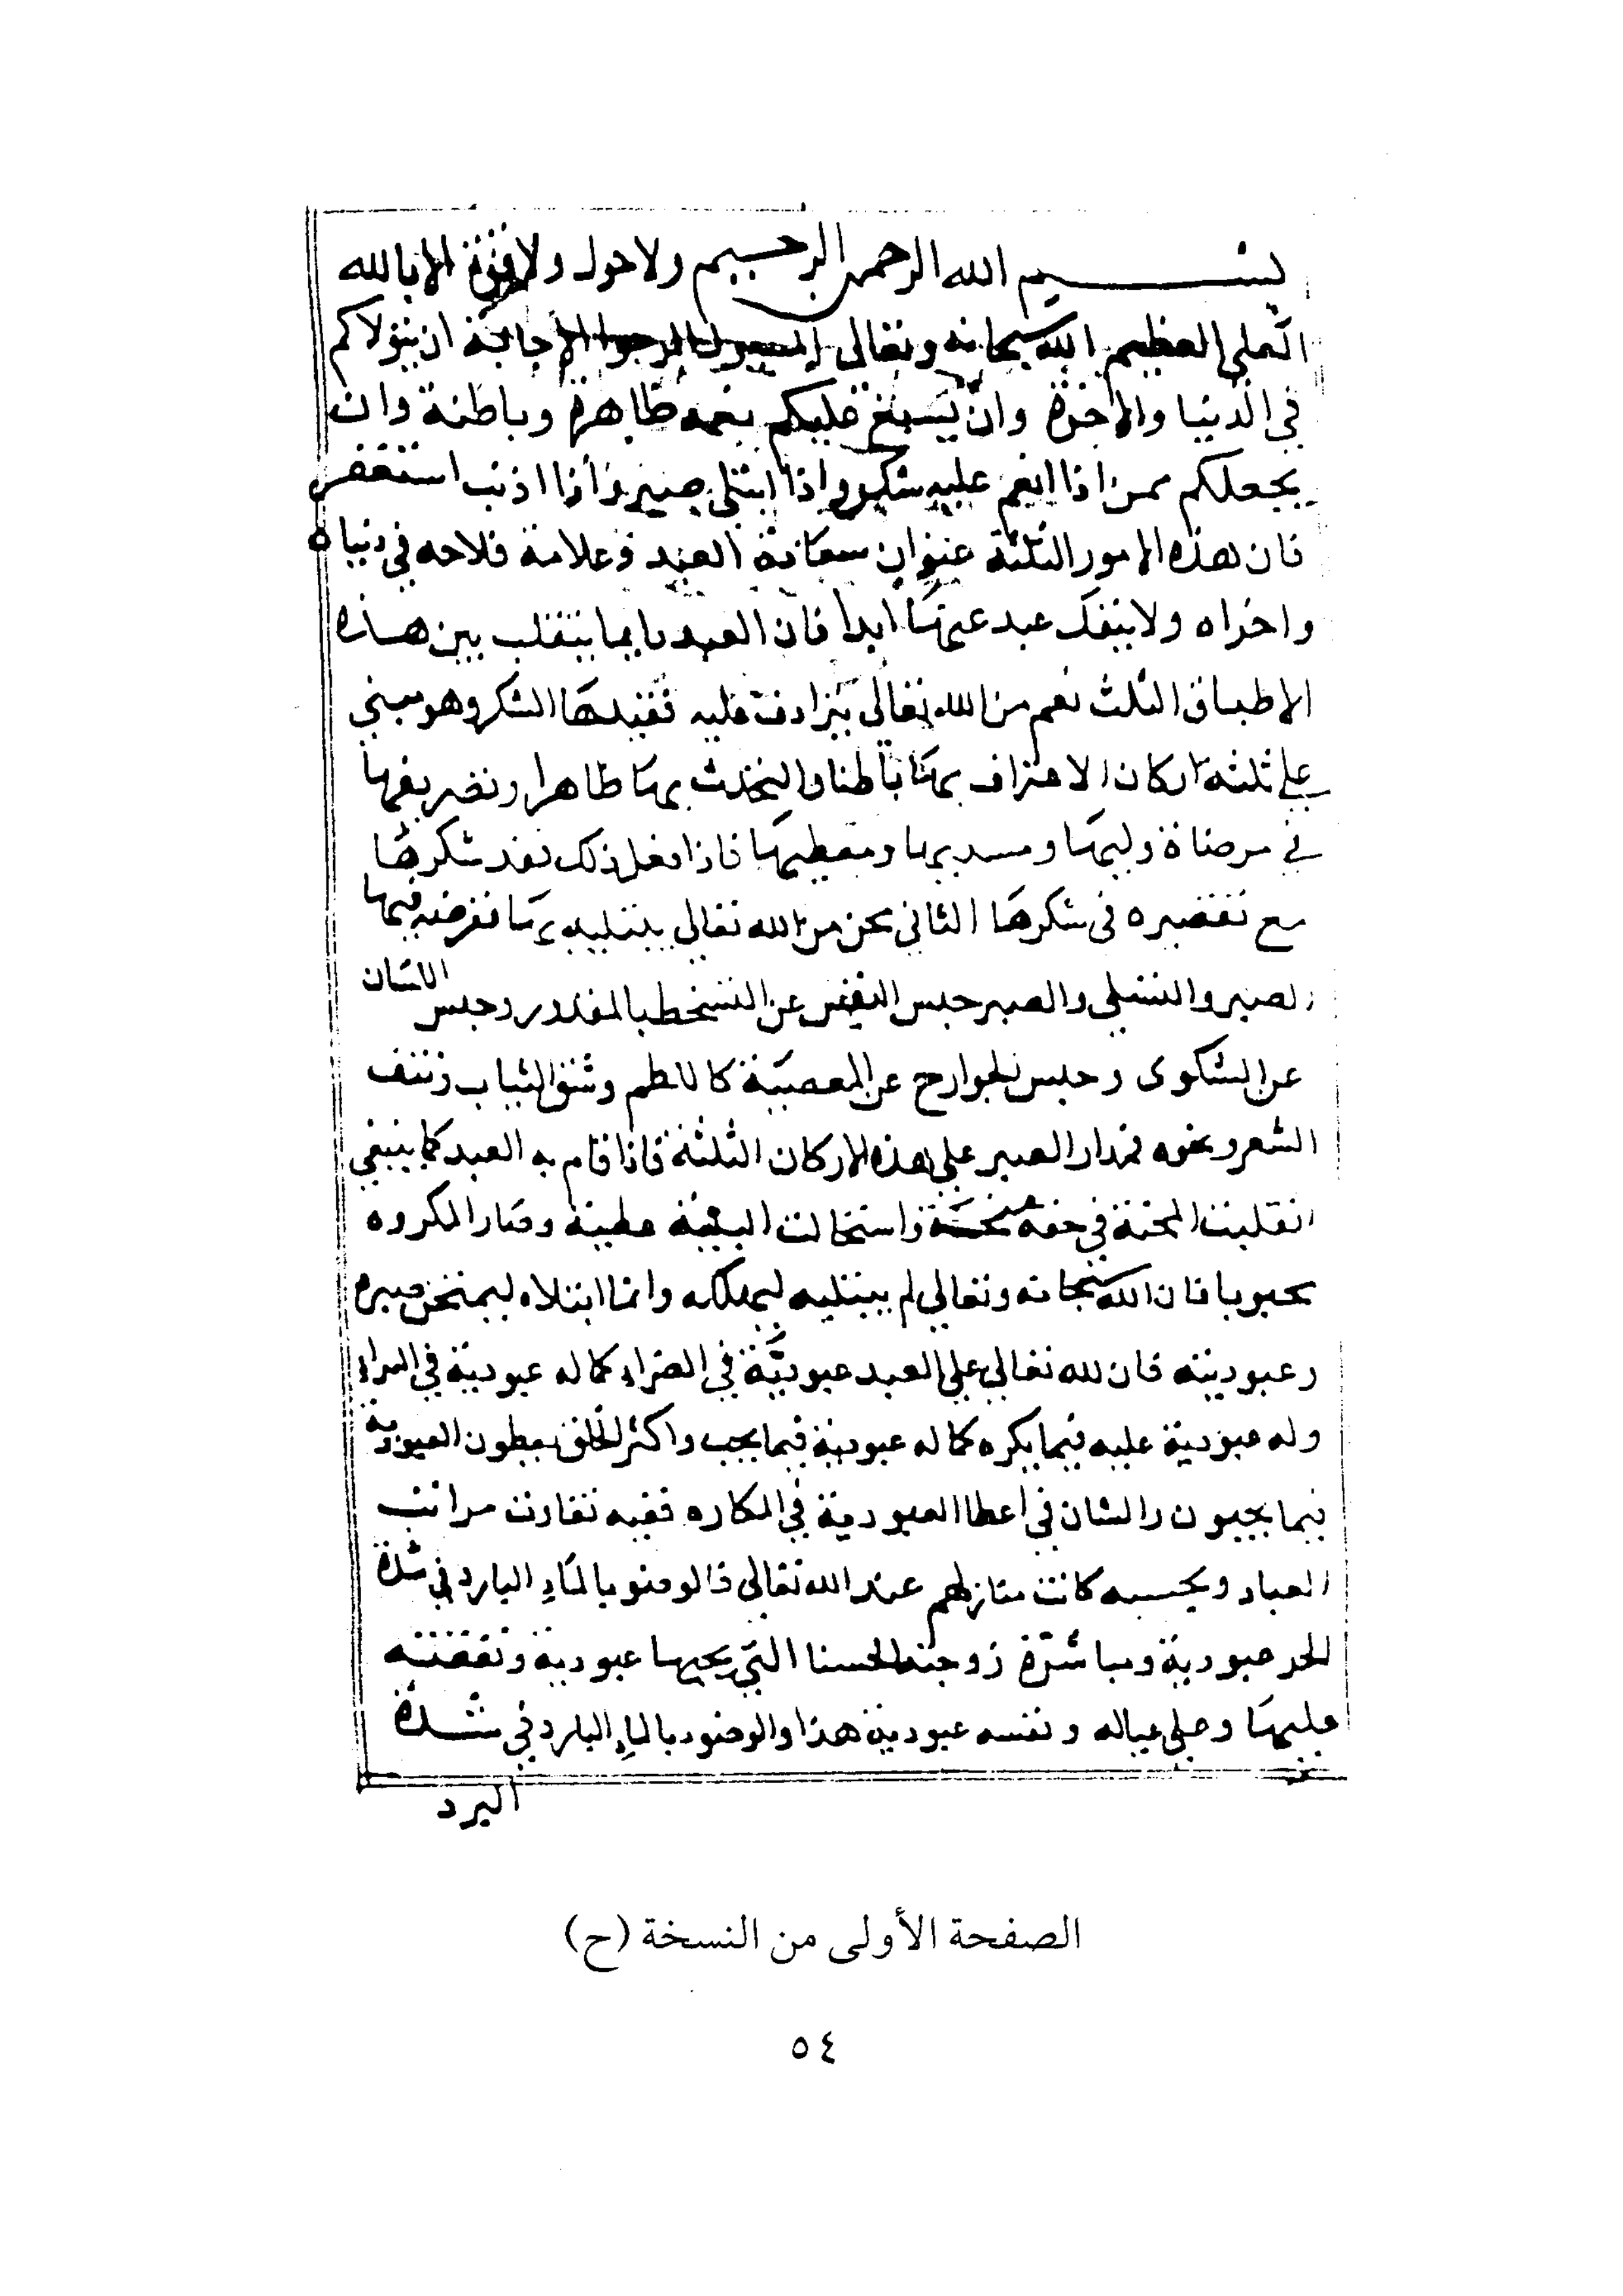 بسم الله الرحمن الرحيم ولا حول ولا قوة الا بالله
العلي العظيم الله سبحانه وتعالى المسول المرجوا الاجابة ان يتولاكم
في الدنيا والاخرة وان يسبغ عليكم نعمه ظاهرة وباطنة وان
يجعلكم ممن اذا انعم عليه شكر واذا ابتلي صبر واذا اذنب استغفر
فان هذه الامور الثلثة عنوان سعادة العبد وعلامة فلاحه في دنياه
واخراه ولا ينفك عبد عنها ابدا فان العبد دايما يتقلب بين هذه
الاطباق الثلث نعم من الله تعالى تترادف عليه فقيدها الشكر وهو مبني
على ثلثة اركان الاعتراف بها باطنا والتحدث بها ظاهرا وتصريفها
في مرضاة وليها ومسديها ومعطيها فاذا فعل ذلك فقد شكرها
مع تقصيره في شكرها الثاني محن من الله تعالى يبتليه بها ففرضه فيها
الصبر والتسلي والصبر حبس النفس عن التسخط بالمقدور وحبس اللسان
عن الشكوى وحبس الجوارح عن المعصية كاللطم وشق الثياب ونتف
الشعر ونحوه فمدار الصبر على هذه الاركان الثلثة فاذا قام به العبد كما ينبغي
انقلبت المحنة في حقه منحة واستحالت البلية عطية وصار المكروه
محبوبا فان الله سبحانه وتعالى لم يبتليه ليهلكه وانما ابتلاه ليمتحن صبره
وعبوديته فان لله تعالى على العبد عبودية في الضراء كما له عبودية في السراء
وله عبودية عليه فيما يكره كما له عبودية فيما يحب واكثر الخلق يعطون العبودية
فيما يحبون والشان في اعطا العبودية في المكاره ففيه تفاوت مراتب
العباد وبحسبه كانت منازلهم عند الله تعالى فالوضو بالماء البارد في شدة
الحر عبودية ومباشرة زوجته الحسنا التي يحبها عبودية ونفقته
عليها وعلى عياله ونفسه عبودية هذا والوضوء بالماء البارد في شدة
البرد
الصفحة الأولى من النسخة (ح)
٥٤